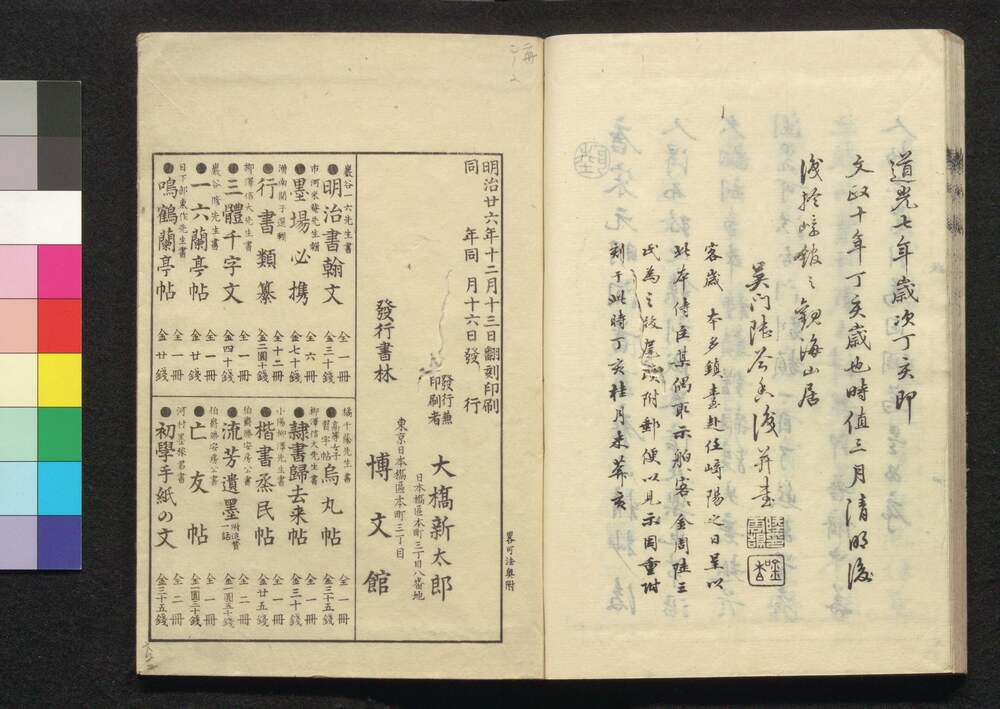 道光七年歲次丁亥即
文政十年丁亥歲也時值三月清明後
淺於崎館之觀海山居
吳門陸
客歲本多鎮臺赴任崎陽之日足以
此本侍臣某偶取示舶客金周陸三
氏為之跋尾附郵便以見示因重附
刻于此時丁亥桂月
明治廿六年十二月十三日翻刻印刷
同年同月十六日發行
發行兼
印刷者
日本橋區本町三丁目八番地
大橋新太郎
發行書林
東京日本橋區本町三丁目
博文館
畧可法奥附
巖谷一六先生書
●明治書翰文 全一冊 金三十錢
市河米菴先生輯
●墨場必携 全六冊 金七十錢
濟南關子選輯
●行書類纂 全十二冊 金二圓十錢
柳澤信大先生書
●三體千字文 全一冊 金四十錢
巖谷脩先生書
●一六蘭亭帖 全一冊 金廿錢
日下部東作先生書
●鳴鶴蘭亭帖 全一冊 金廿錢
橘千蔭先生書
高等女子習字帖
●烏丸帖 全一冊 金三十五錢
柳澤信大先生書
●隸書歸去来帖 全一冊 金三十錢
小楊柳澤先生書
●楷書烝民帖 全一冊 金廿五錢
伯爵勝安房公書
●流芳遺墨 附追賛一話 全二冊 金一圓五十錢
伯爵勝安房公書
●亡友帖 全一冊 金一圓三十錢
河村墨稼君書
●初學手紙の文 全二冊 金三十五錢